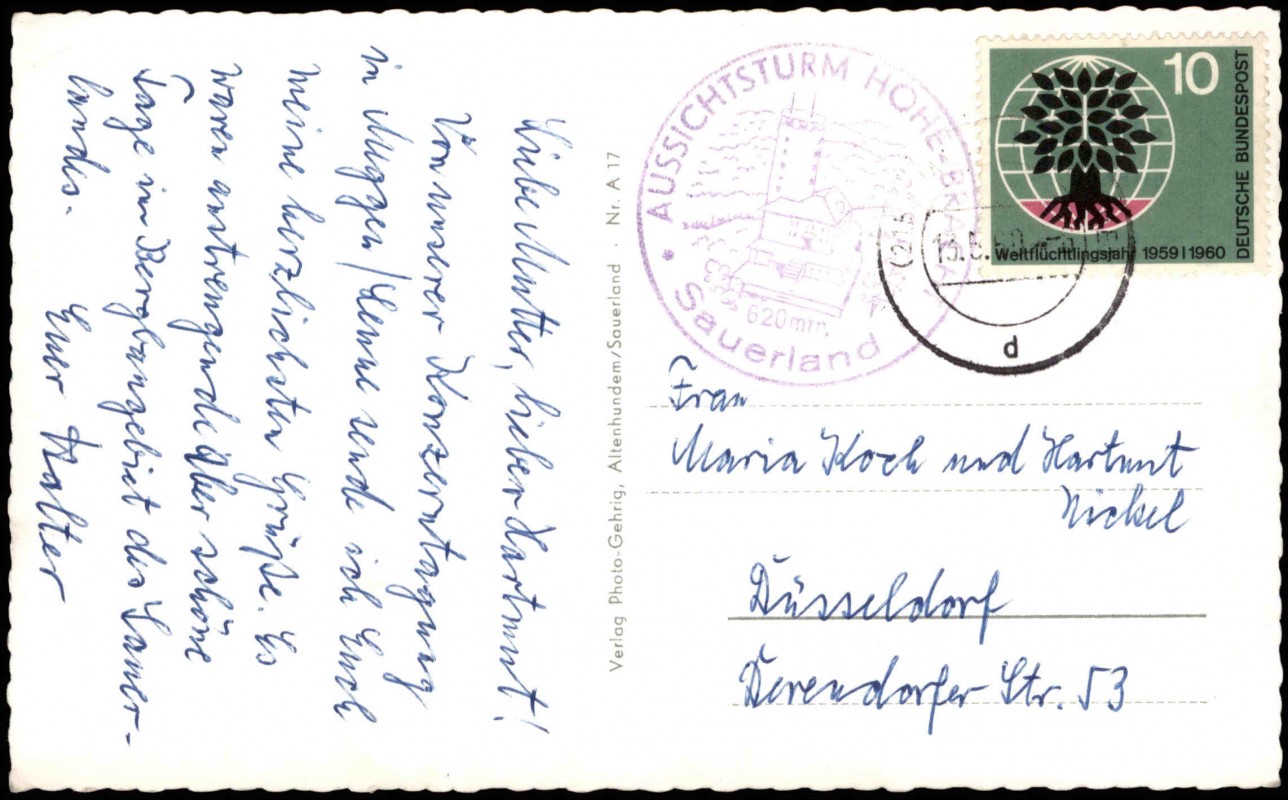 Liebe Mutter, lieber Hartmut!
Von unserer Konzerntagung
in Meggen/Lenne sende ich Euch
meine herzlichsten Grüße. Es
waren anstrengende aber schöne
Tage im Bergbaugebiet des Sauer-
landes.
Euer Walter
Verlag Photo-Gehrig, Altenhundem/Sauerland · Nr. A 17
* AUSSICHTSTURM HOHE-BRACHT
620 mtr.
Sauerland
10
DEUTSCHE BUNDESPOST
Weltflüchtlingsjahr 1959|1960
(21b
d
Frau
Maria Koch und Hartmut
Nickel
Düsseldorf
Derendorfer Str. 53